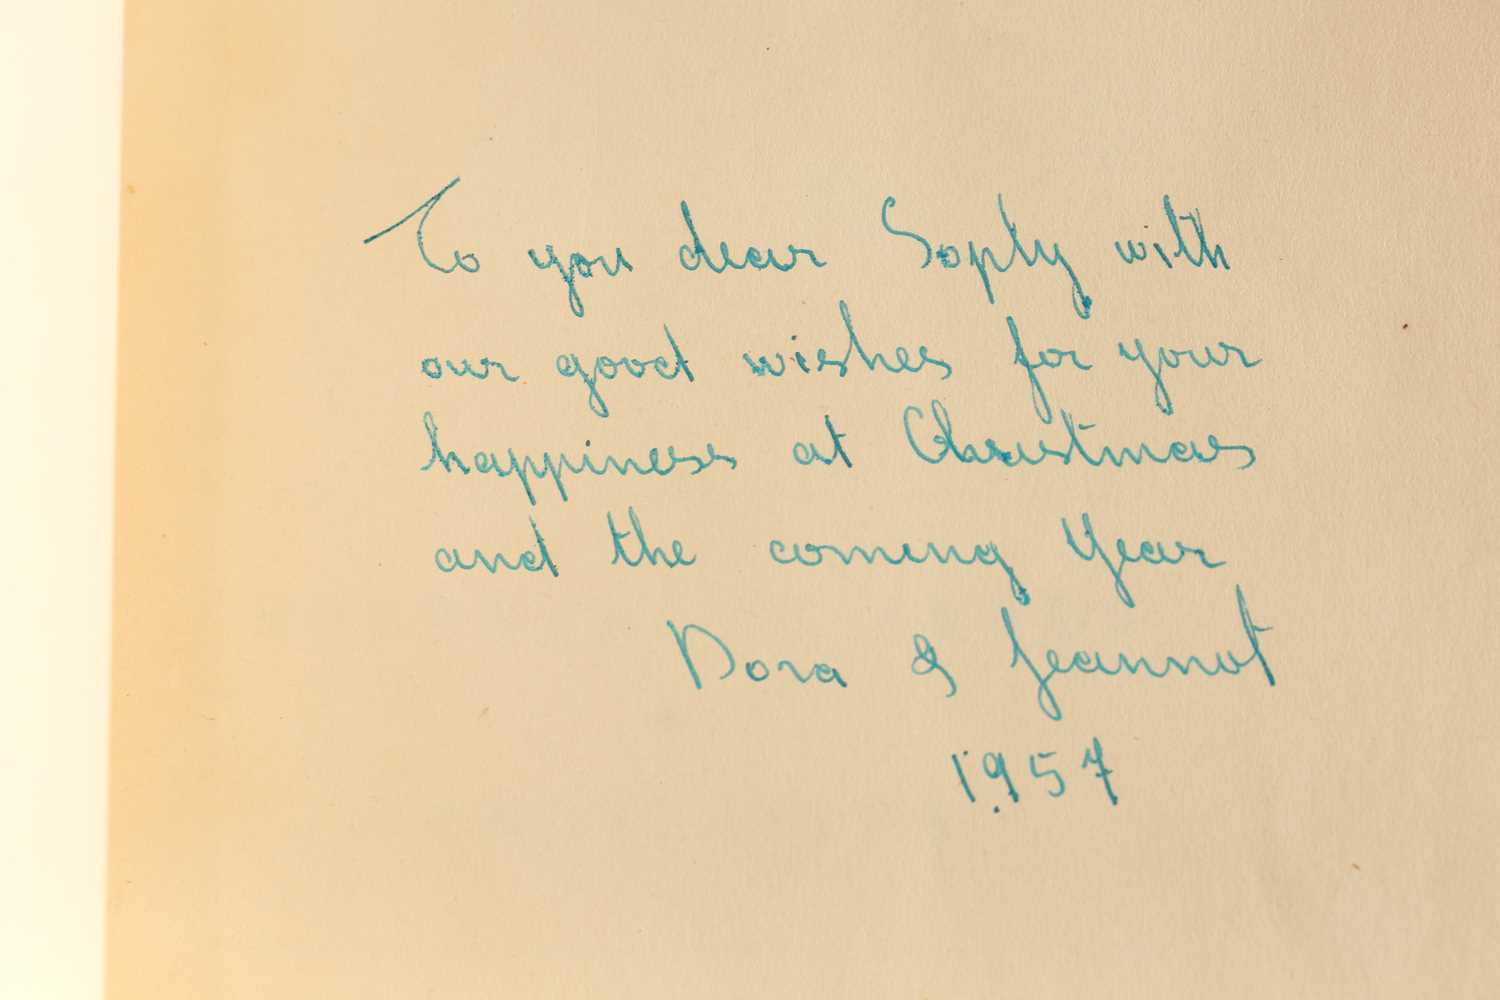 To you dear Soply with
our good wishes for your
happiness at Christmas
and the coming Year
Dora & Jeannot
1957